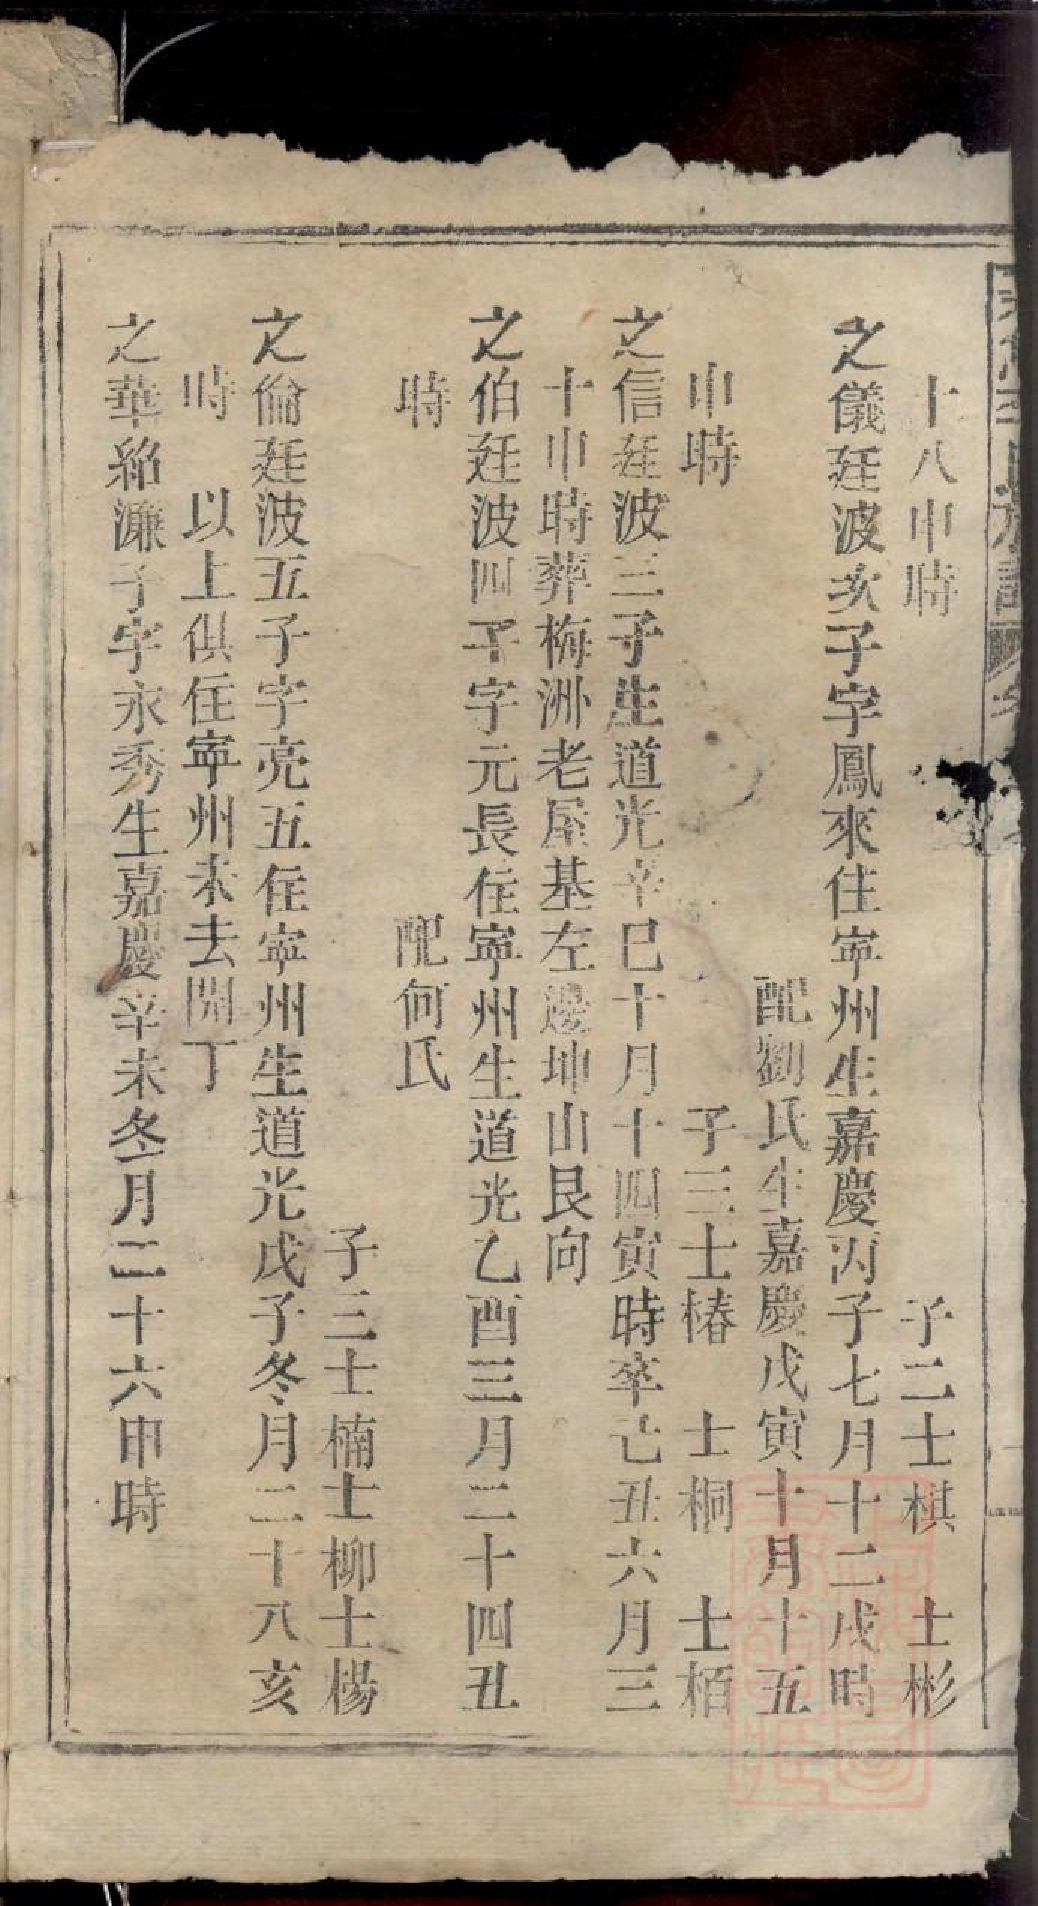 十八申時　子二士棋　士彬
之儀廷波亥子字鳳來住寧州生嘉慶丙子七月十二戌時
配劉氏生嘉慶戊寅十月十五
申時　子三士椿　士桐　士栢
之信廷波三子生道光辛巳十月十四寅時卒己丑六月三
十申時葬梅洲老屋基左邊坤山艮向
之伯廷波四子字元長住寧州生道光乙酉三月二十四丑
時　配何氏
子三士楠士柳士楊
之倫廷波五子字亮五住寧州生道光戊子冬月二十八亥
時　以上俱住寧州未去開丁
之華紹濂子字永秀生嘉慶辛未冬月二十六申時